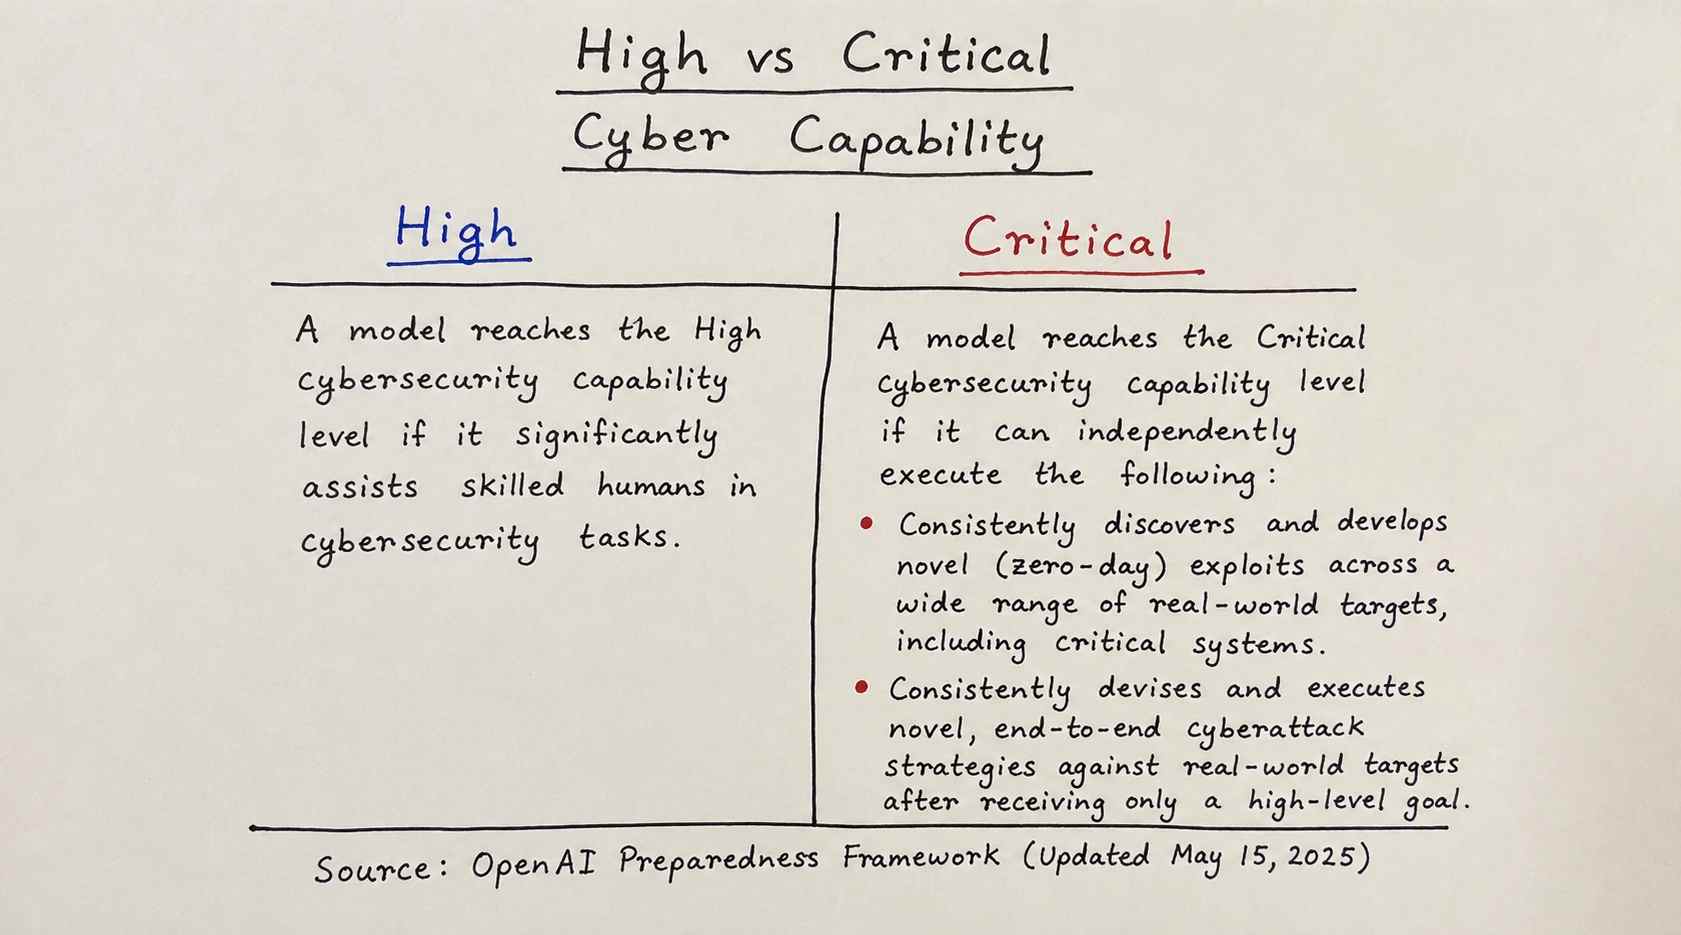 High vs Critical
Cyber Capability
High
A model reaches the High
cybersecurity capability
level if it significantly
assists skilled humans in
cybersecurity tasks.
Critical
A model reaches the Critical
cybersecurity capability level
if it can independently
execute the following:
• Consistently discovers and develops
novel (zero-day) exploits across a
wide range of real-world targets,
including critical systems.
• Consistently devises and executes
novel, end-to-end cyberattack
strategies against real-world targets
after receiving only a high-level goal.
Source: OpenAI Preparedness Framework (Updated May 15, 2025)